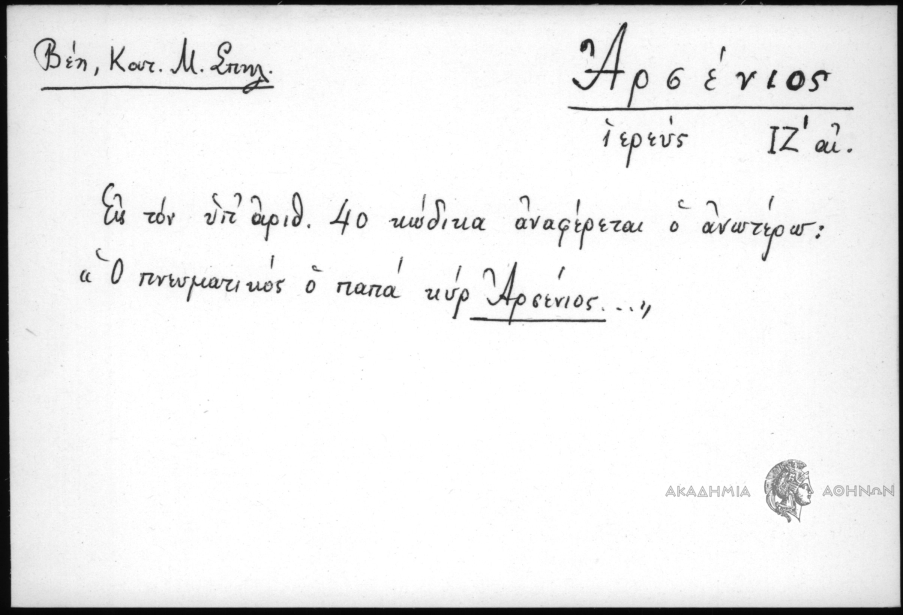 Βέη, Κατ. Μ. Σπηλ.
Ἀρσένιος
ἱερεύς ΙΖ' αἰ.
Εἰς τόν ὑπ' ἀριθ. 40 κώδικα ἀναφέρεται ὁ ἀνωτέρω:
« Ὁ πνευματικός ὁ παπά κύρ Ἀρσένιος...»
ΑΚΑΔΗΜΙΑ ΑΘΗΝΩΝ